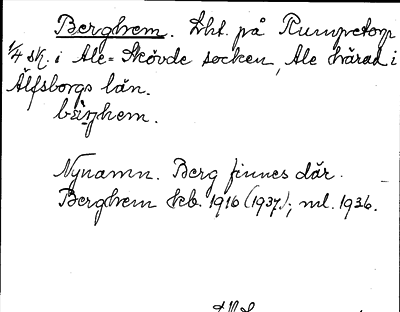 Berghem. Lht. på Rumpetorp
1/4 sk. i Ale-Skövde socken, Ale härad i
Älfsborgs län.
bärjhem.
Nynamn. Berg finnes där.
Berghem kb. 1916 (1937); ml. 1936.